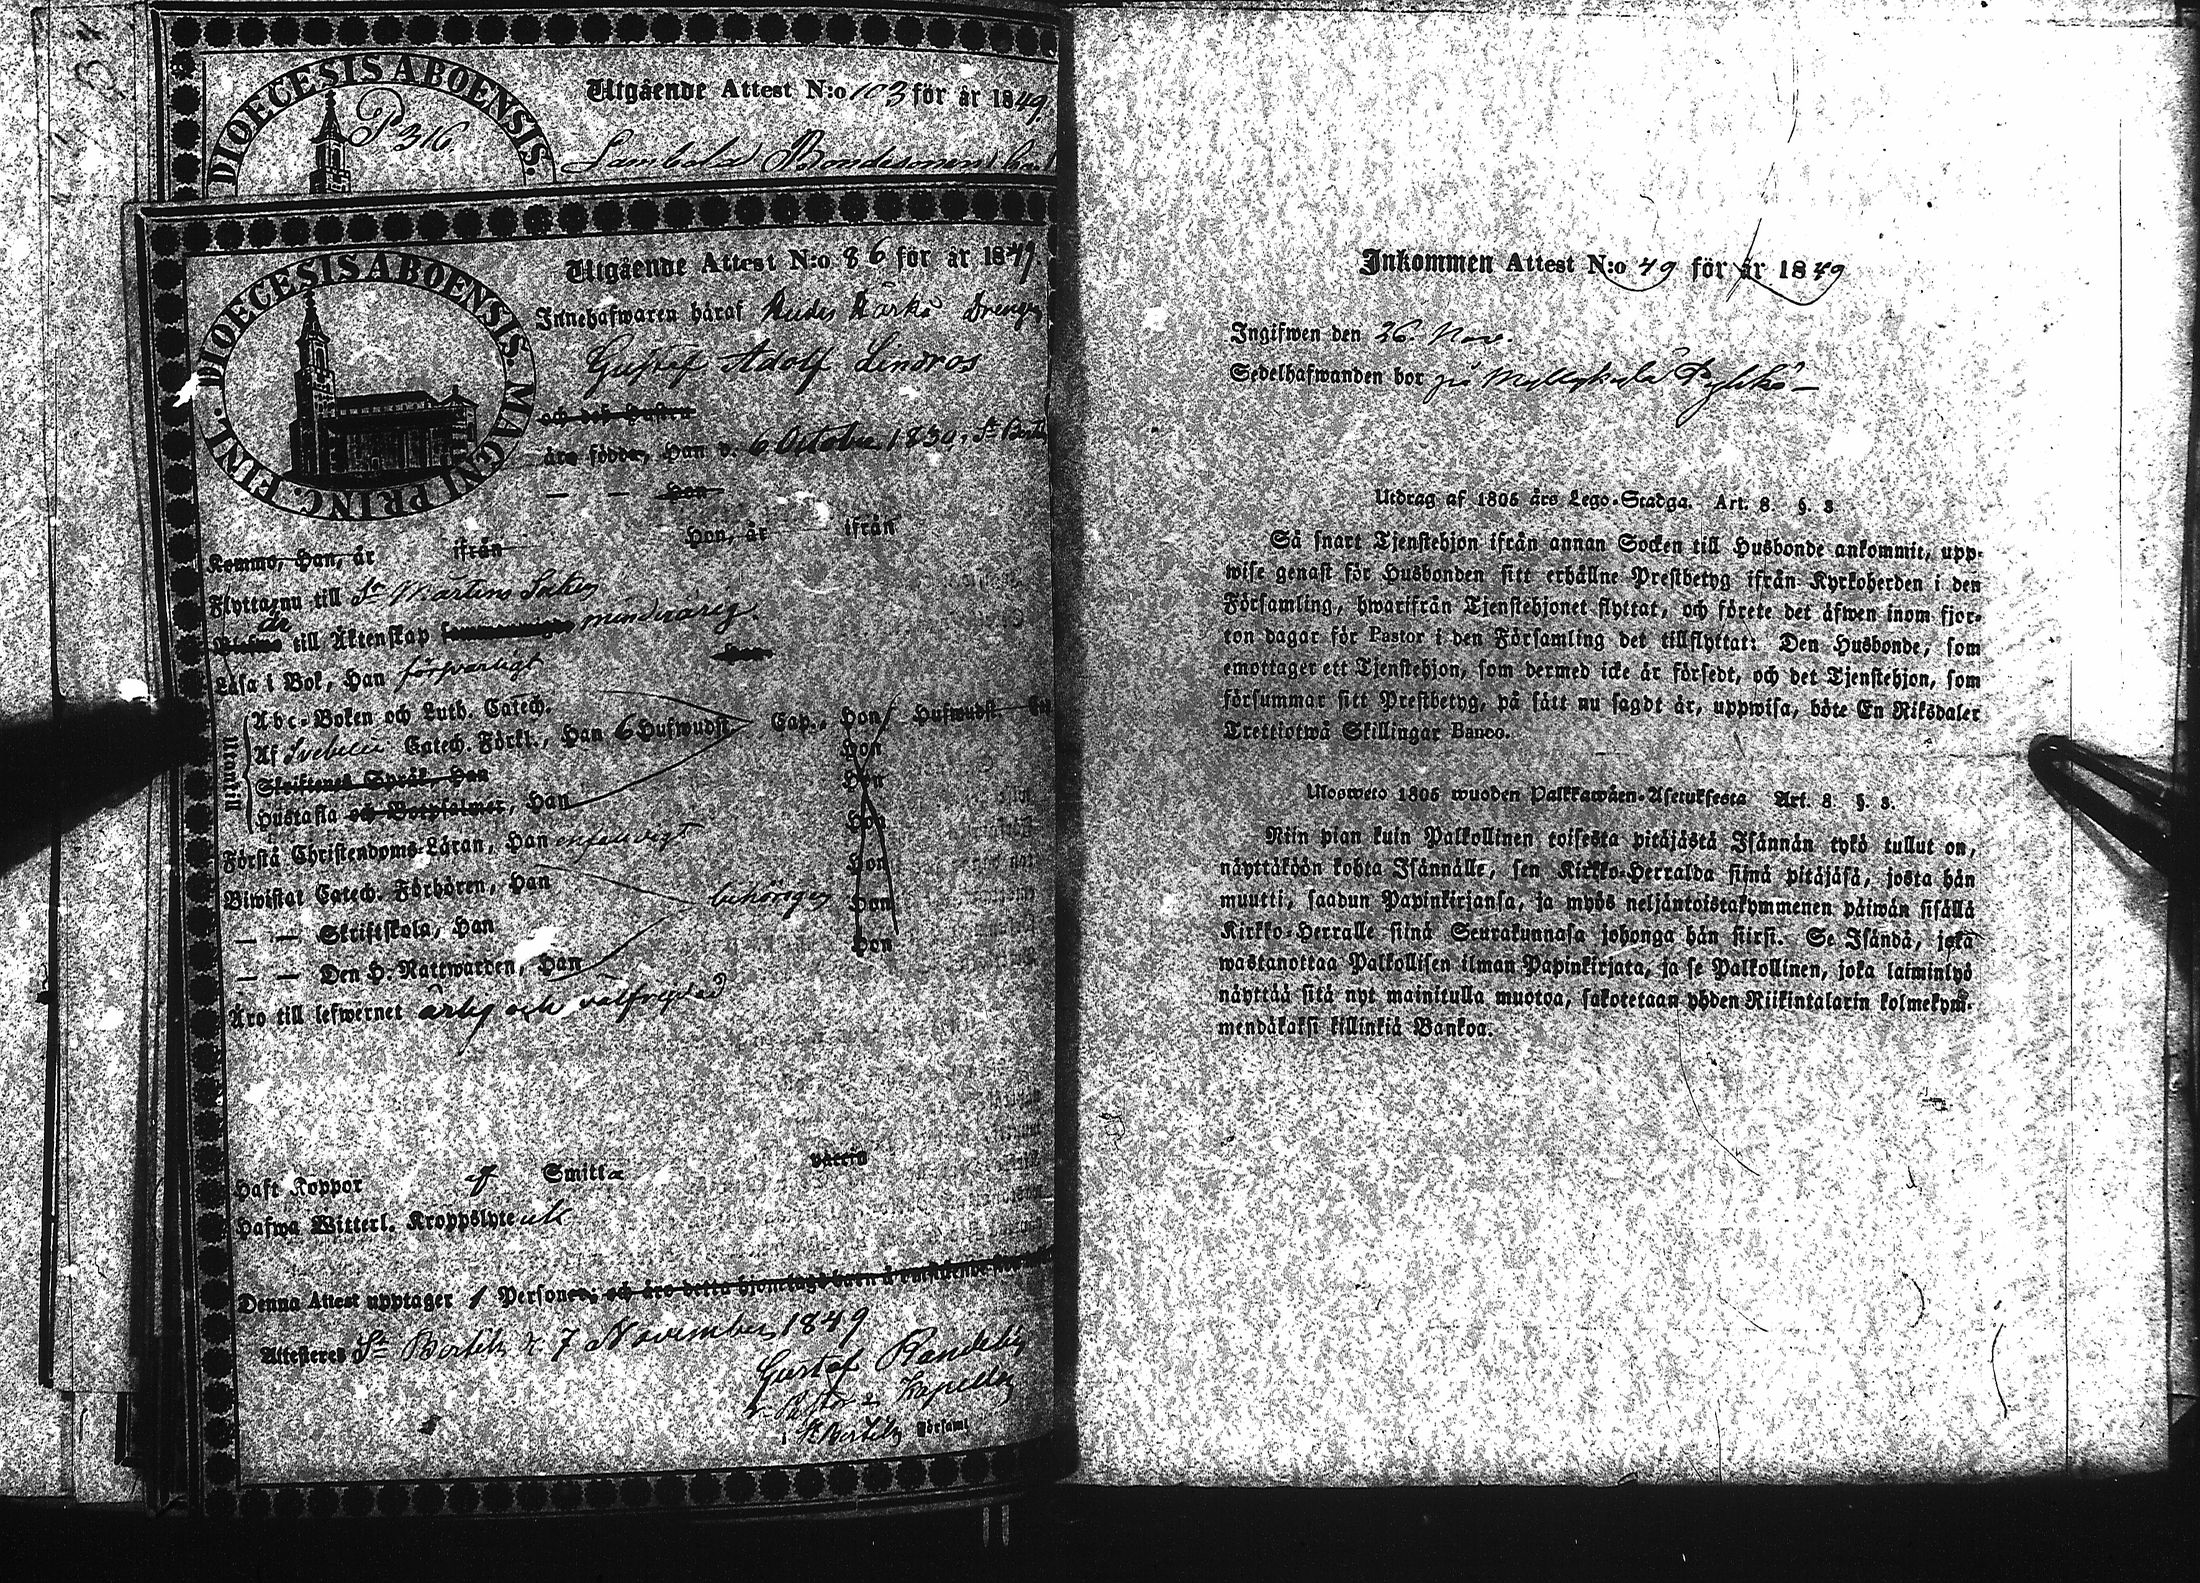 DIOECESIS ABOENSIS.
P 316
Utgående Attest N:o 103 för år 1849.
Bondesonen
DIOECESIS ABOENSIS. MAGNI PRINC. FINL.
Utgående Attest N:o 86 för år 1849.
Innehafwaren häraf Drengen
Gustaf Adolf Lindros
och dess hustru
äro födde, Han d. 6 October 1830 i St Bertils
— — Hon
Kommo, Han, år ifrån Hon, år ifrån
Flytta nu till St Mårtens Socken
är till Äktenskap minderårig.
Läsa i Bok, Han försvarligt Hon
Utantill
Abc-Boken och Luth. Catech.
Af Svebelii Catech. Förkl., Han 6 Hufwudst. Cap., Hon Hufwudst.
Hon
Skriftenes Språk, Han Hon
Hustafla och Botpsalmer, Han Hon
Förstå Christendoms-Läran, Han enfaldigt Hon
Biwistat Catech. Förhören, Han behörigen Hon
— — Skriftskola, Han
— — Den H. Nattwarden, Han Hon
Äro till lefwernet ärlig och välfrejdad
Haft Koppor af Smitta
Hafwa Witterl. Kroppslyte
Denna Attest upptager 1 Personer, och äro detta hjonelags barn
Attesteras St Bertils d. 7 November 1849
Gustaf Randelin
v. Pastor & Kapellan
i St Bertils Församl
Inkommen Attest N:o 49 för år 1849
Ingifwen den 26. Nov.
Sedelhafwanden bor på Myllykylä Pyhkö
Utdrag af 1805 års Lego-Stadga. Art. 8 §. 3
Så snart Tjenstehjon ifrån annan Socken till Husbonde ankommit, upp-
wise genast för Husbonden sitt erhållne Prestbetyg ifrån Kyrkoherden i den
Församling, hwarifrån Tjenstehjonet flyttat, och förete det äfwen inom fjor-
ton dagar för Pastor i den Församling det tillflyttat: Den Husbonde, som
emottager ett Tjenstehjon, som dermed icke är försedt, och det Tjenstehjon, som
försummar sitt Prestbetyg, på sätt nu sagdt är, uppwisa, böte En Riksdaler
Trettiotwå Skillingar Banco.
Ulosweto 1805 wuoden Palkkawäen-Asetuksesta Art. 8. §. 3.
Niin pian kuin Palkollinen toisesta pitäjästä Isännän tykö tullut on,
näyttäköön kohta Isännälle, sen Kirkko-Herralda siinä pitäjäsä, josta hän
muutti, saadun Papinkirjansa, ja myös neljäntoistakymmenen päiwän sisällä
Kirkko-Herralle siinä Seurakunnasa johonga hän siirsi. Se Isändä, joka
wastanottaa Palkollisen ilman Papinkirjata, ja se Palkollinen, joka laiminlyö
näyttää sitä nyt mainitulla muotoa, sakotetaan yhden Riikintalarin kolmekym-
mendäkaksi killinkiä Bankoa.